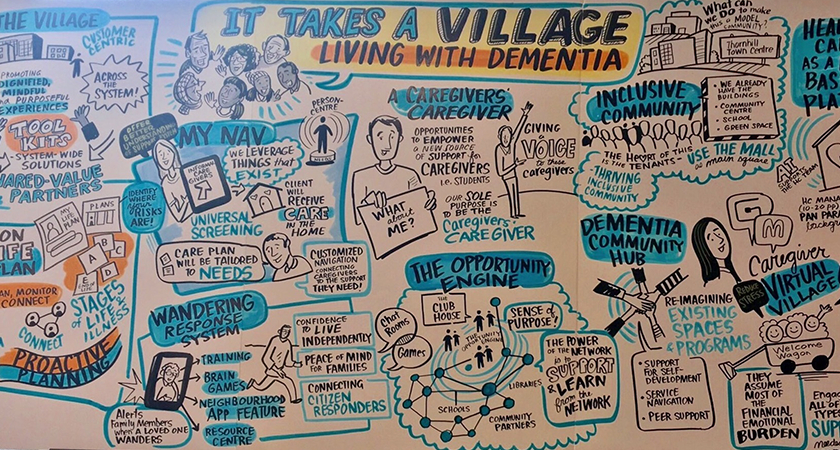 IT TAKES A VILLAGE
LIVING WITH DEMENTIA
THE VILLAGE
CUSTOMER
CENTRIC
PROMOTING
DIGNIFIED,
MINDFUL
PURPOSEFUL
EXPERIENCES
ACROSS
THE
SYSTEM!
TOOL
KITS
SYSTEM-WIDE
SOLUTIONS
SHARED-VALUE
PARTNERS
LIFE
PLAN
MY LIFE
PLAN
PLANS
A
B
C
E
D
MONITOR
CONNECT
STAGES
of LIFE &
ILLNESS
PROACTIVE
PLANNING
OFFER
UNDERSTANDING
SUPPORT
MY NAV
WE LEVERAGE
THINGS that
EXIST
PERSON-
CENTRE
NEEDS
CARE
GUIDES
IDENTIFY
WHERE
your
RISKS
ARE!
UNIVERSAL
SCREENING
CLIENT
WILL
RECEIVE
CARE
IN THE
HOME
CARE PLAN
WILL BE TAILORED
TO NEEDS
CUSTOMIZED
NAVIGATION
CONNECTING
CAREGIVERS
TO THE SUPPORT
THEY NEED!
WANDERING
RESPONSE
SYSTEM
TRAINING
BRAIN
GAMES
NEIGHBOURHOOD
APP FEATURE
RESOURCE
CENTRE
Alerts
Family Members
when A LOVED ONE
WANDERS
CONFIDENCE
TO LIVE
INDEPENDENTLY
PEACE OF MIND
FOR FAMILIES
CONNECTING
CITIZEN
RESPONDERS
A CAREGIVERS'
CAREGIVER
OPPORTUNITIES
TO EMPOWER
A NEW SOURCE
of SUPPORT for
CAREGIVERS
i.e. STUDENTS
GIVING
a VOICE
to these
caregivers
WHAT
about
ME?
OUR SOLE
PURPOSE IS
TO BE THE
Caregivers'
CAREGIVER
THE OPPORTUNITY
ENGINE
THE
CLUB
HOUSE
Chat
ROOMS
Games
SENSE OF
PURPOSE!
LIBRARIES
SCHOOLS
COMMUNITY
PARTNERS
THE POWER
OF THE NETWORK
IS TO
SUPPORT
& LEARN
from the
NETWORK
What can
WE DO to make
this a MODEL
COMMUNITY?
Thornhill
Town Centre
INCLUSIVE
COMMUNITY
WE ALREADY
HAVE THE
BUILDINGS
• COMMUNITY
CENTRE
• SCHOOL
• GREEN SPACE
THE HEART OF THIS
IS THE TENANTS
USE THE MALL
as main square
THRIVING
INCLUSIVE
COMMUNITY
DEMENTIA
COMMUNITY
HUB
RE-IMAGINING
EXISTING
SPACES
& PROGRAMS
• SUPPORT
FOR SELF-
DEVELOPMENT
• SERVICE
NAVIGATION
• PEER SUPPORT
C
M
REDUCE
STRESS
Caregiver
VIRTUAL
VILLAGE
Welcome
Wagon
THEY
ASSUME
MOST OF
THE
FINANCIAL
EMOTIONAL
BURDEN
AS A
AT